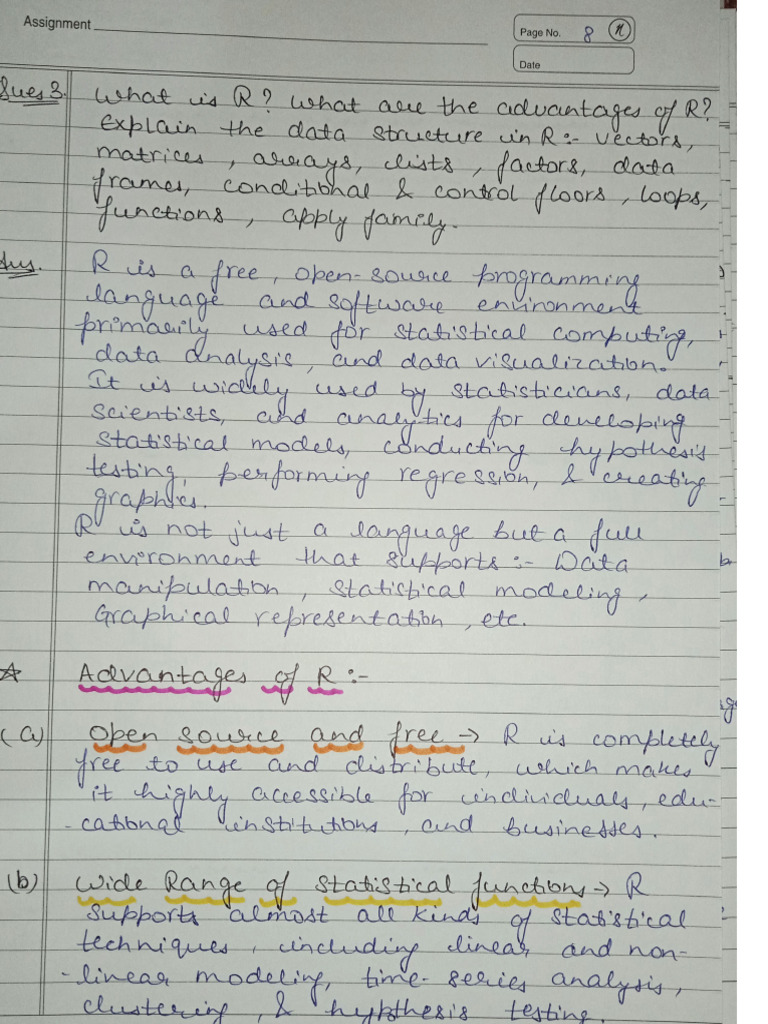 Assignment
Page No. 8
Date
Ques 3. What is R? What are the advantages of R?
Explain the data structure in R:- Vectors,
matrices, arrays, lists, factors, data
frames, conditional & control floors, loops,
functions, apply family.
Ans. R is a free, open-source programming
language and software environment
primarily used for statistical computing,
data analysis, and data visualization.
It is widely used by statisticians, data
scientists, and analytics for developing
statistical models, conducting hypothesis
testing, performing regression, & creating
graphics.
R is not just a language but a full
environment that supports:- Data
manipulation, statistical modeling,
Graphical representation, etc.
☆ Advantages of R:-
(a) Open source and free → R is completely
free to use and distribute, which makes
it highly accessible for individuals, edu-
-cational institutions, and businesses.
(b) Wide Range of Statistical functions → R
supports almost all kinds of statistical
techniques, including linear and non-
-linear modeling, time-series analysis,
clustering, & hypothesis testing.